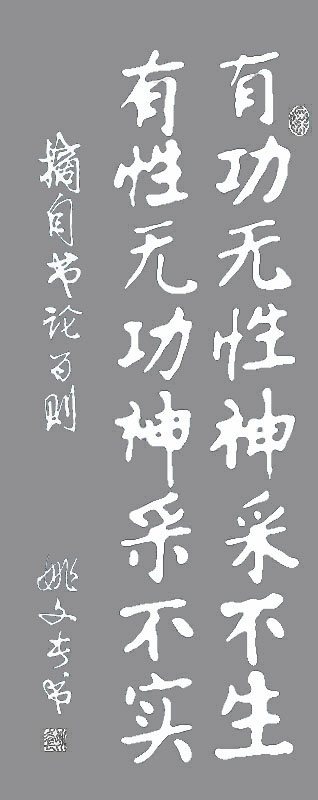 有功无性神采不生
有性无功神采不实
摘自书论百则
姚文春书